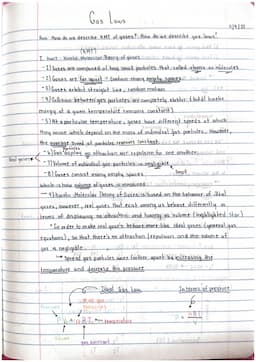 Gas Laws
How do we describe KMT of gases? How do we describe gas laws?
(KMT)
I. Kinetic Molecular Theory of gases
-1) Gases are composed of tiny small particles that called atoms or molecules
-2) Gases are far apart - Contain many empty spaces
-3) Gases exhibit straight line, random motion
-4) Collisions between gas particles are completely elastic (total kinetic
energy at a given temperature remains constant)
-5) At a particular temperature, gases have different speeds at which
they move which depend on the mass of individual gas particles. However,
the average speed of particles remains constant
-6) Gas display no attraction nor repulsion for one another
-7) Volume of individual gas particles is negligible
-8) Gases consist mainly empty spaces
which is how volume of gases is considered
Kinetic Molecular Theory of Gases is based on the behavior of ideal
gases, however, real gases that exist among us behave differently in
terms of displaying no attraction and having no volume (highlighted star)
In order to make real gas's behave more like ideal gases (general gas
equations), so that there's no attraction/repulsion and the volume of
gas is negligible
Spread gas particles more farther apart by increasing the
temperature and decrease the pressure
Ideal Gas Law
In terms of pressure
temperature
gas constant